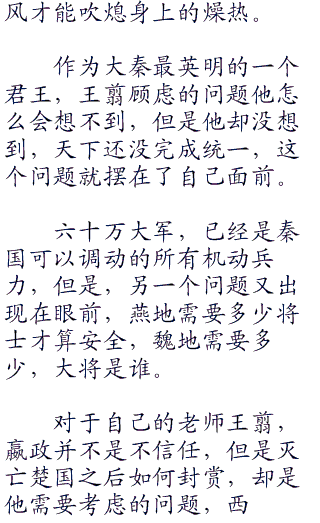 风才能吹熄身上的燥热。
作为大秦最英明的一个
君王，王翦顾虑的问题他怎
么会想不到，但是他却没想
到，天下还没完成统一，这
个问题就摆在了自己面前。
六十万大军，已经是秦
国可以调动的所有机动兵
力，但是，另一个问题又出
现在眼前，燕地需要多少将
士才算安全，魏地需要多
少，大将是谁。
对于自己的老师王翦，
嬴政并不是不信任，但是灭
亡楚国之后如何封赏，却是
他需要考虑的问题，西